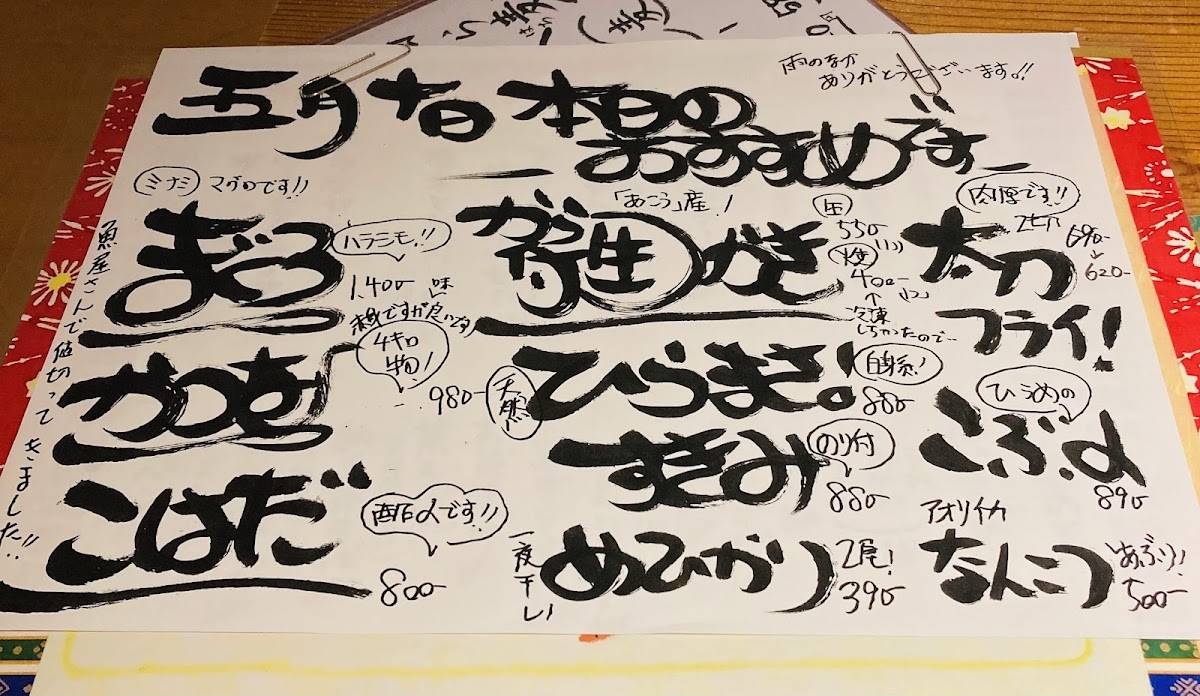 雨のなか
ありがとうございます!!
五月十日 本日の
おすすめです
ミナミ マグロです!!
まぐろ
ハラシモ!!
1,400-
味
赤身ですが良いです
魚屋さんで値切ってきました!!
かつを
4キロ物!
980-
こはだ
酢〆です!!
800-
「あこう」産!
から付生がき
生
550-(1コ)
焼
400-(1コ)
↑
冷凍
しちゃったので…
天然
ひらまさ!
白身系!
880-
すきみ
のり付
880-
一夜干し!
めひかり
2尾!
390-
肉厚です!!
太刀
690-
↓
620-
フライ!
ひらめの
こぶ〆
890-
アオリイカ
なんこつ
あぶり!
500-